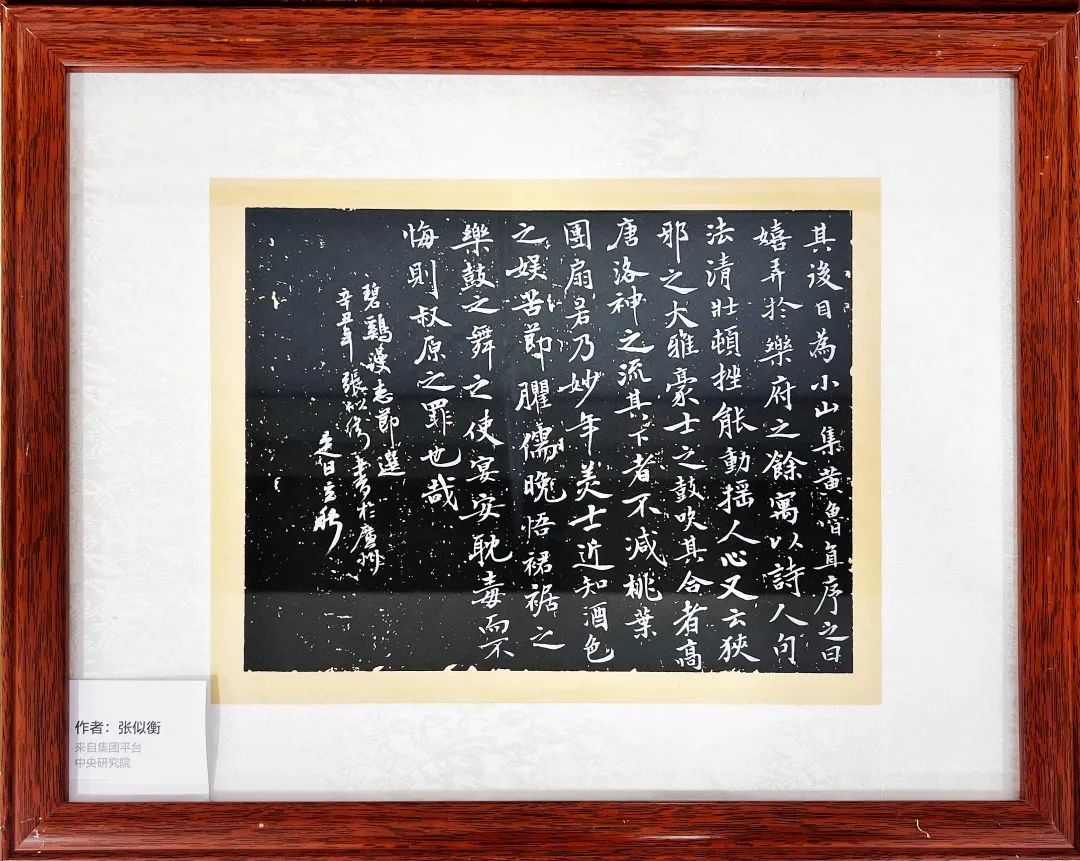 其後目為小山集黃魯直序之曰
嬉弄於樂府之餘寓以詩人句
法清壯頓挫能動搖人心又云狹
邪之大雅豪士之鼓吹其合者高
唐洛神之流其下者不減桃葉
團扇若乃妙年美士近知酒色
之娛苦節臞儒晚悟裙裾之
樂鼓之舞之使宴安耽毒而不
悔則叔原之罪也哉
碧鷄漫志節選
辛丑年張似衡書於廣州
是日立秋
作者：张似衡
来自集团平台
中央研究院